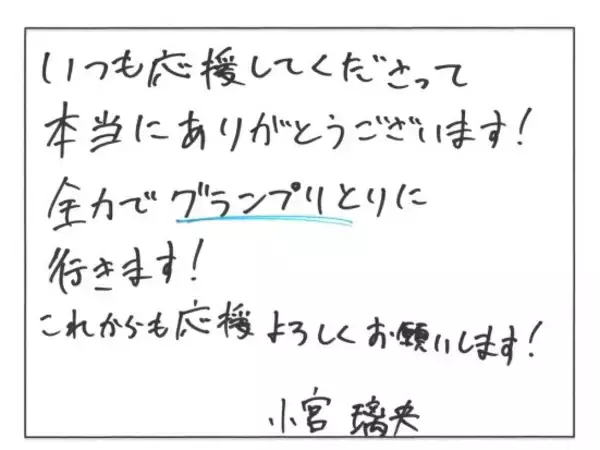 いつも応援してくださって
本当にありがとうございます!
全力でグランプリとりに
行きます!
これからも応援よろしくお願いします!
小宮 璃央